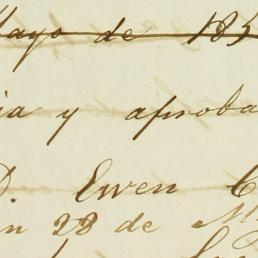 Mayo de 185
ia y aproba
D. Ewen C
n 28 de M